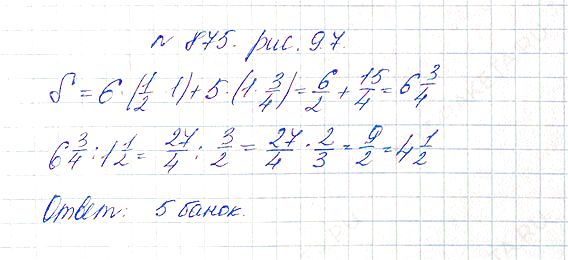 № 875. рис. 97.
S = 6 · (1/2 · 1) + 5 · (1 · 3/4) = 6/2 + 15/4 = 6 3/4
6 3/4 : 1 1/2 = 27/4 : 3/2 = 27/4 · 2/3 = 9/2 = 4 1/2
Ответ: 5 банок.